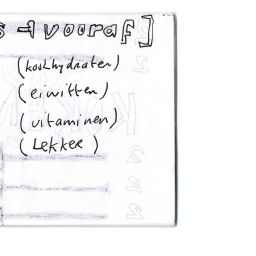 s + vooraf]
(koolhydraten)
(eiwitten)
(vitaminen)
(Lekker)